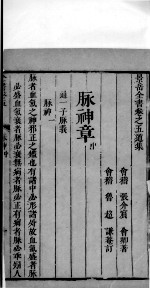 景岳全書卷之五道集
會稽 張介賓 會卿著
會稽 魯超 謙菴訂
脉神章
通一子脉義
脉神一
脉者血氣之神邪正之鑑也有諸中必形諸外故血氣盛者脉
必盛血氣衰者脉必衰無病者脉必正有病者脉必乖矧人